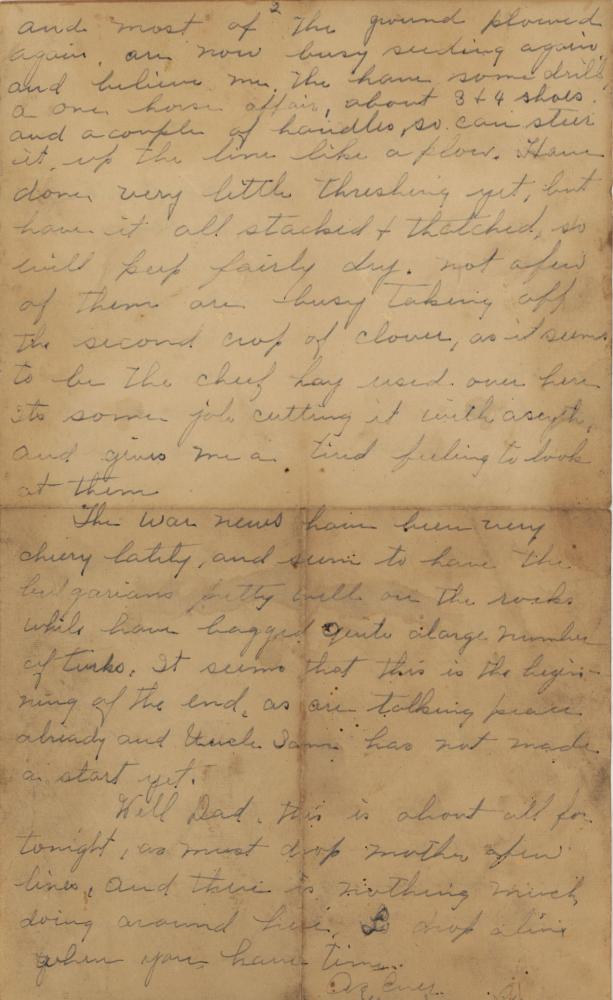 2
and most of the ground plowed
again, are now busy seeding again,
and believe me, the have some drill,
a one horse affair, about 3 & 4 shoes.
and a couple of handles, so can steer
it, up the line like a plow. Have
done very little threshing yet, but
have it all stacked & thatched, so
will keep fairly dry. not a few
of them are busy taking off
the second crop of clover, as it seems
to be the cheef hay used over here
its some job cutting it with a scyth,
and gives me a tired feeling to look
at them
The war news have been very
cheery lately, and seem to have the
bulgarians pretty well on the rocks
while have bagged quite a large number
of turks. It seems that this is the begin-
ning of the end, as are talking peace
already and Uncle Sam has not made
a start yet.
Well Dad, this is about all for
tonight, as must drop mother a few
lines, and there is nothing much
doing around here, So drop a line
when you have time.
As Ever